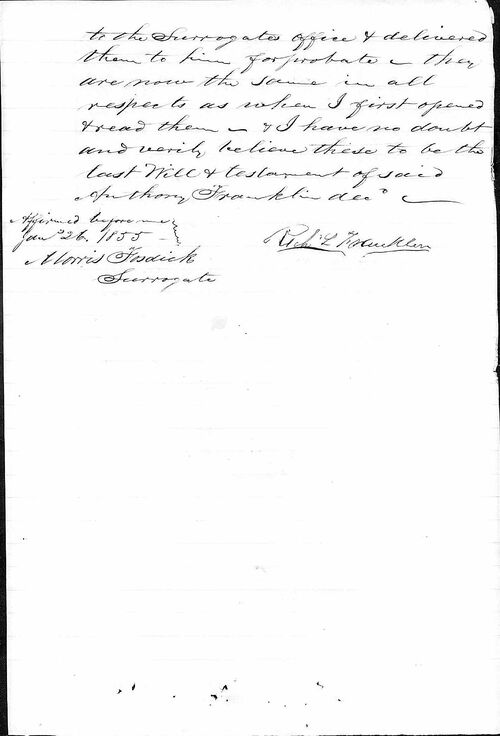 to the Surrogates office & delivered
them to him for probate – they
are now the same in all
respects as when I first opened
& read them – & I have no doubt
and verily believe these to be the
last Will & testament of said
Anthony Franklin decd –
Affirmed before me
Jany 26, 1855
Morris Fosdick
Surrogate
Richd L Franklin